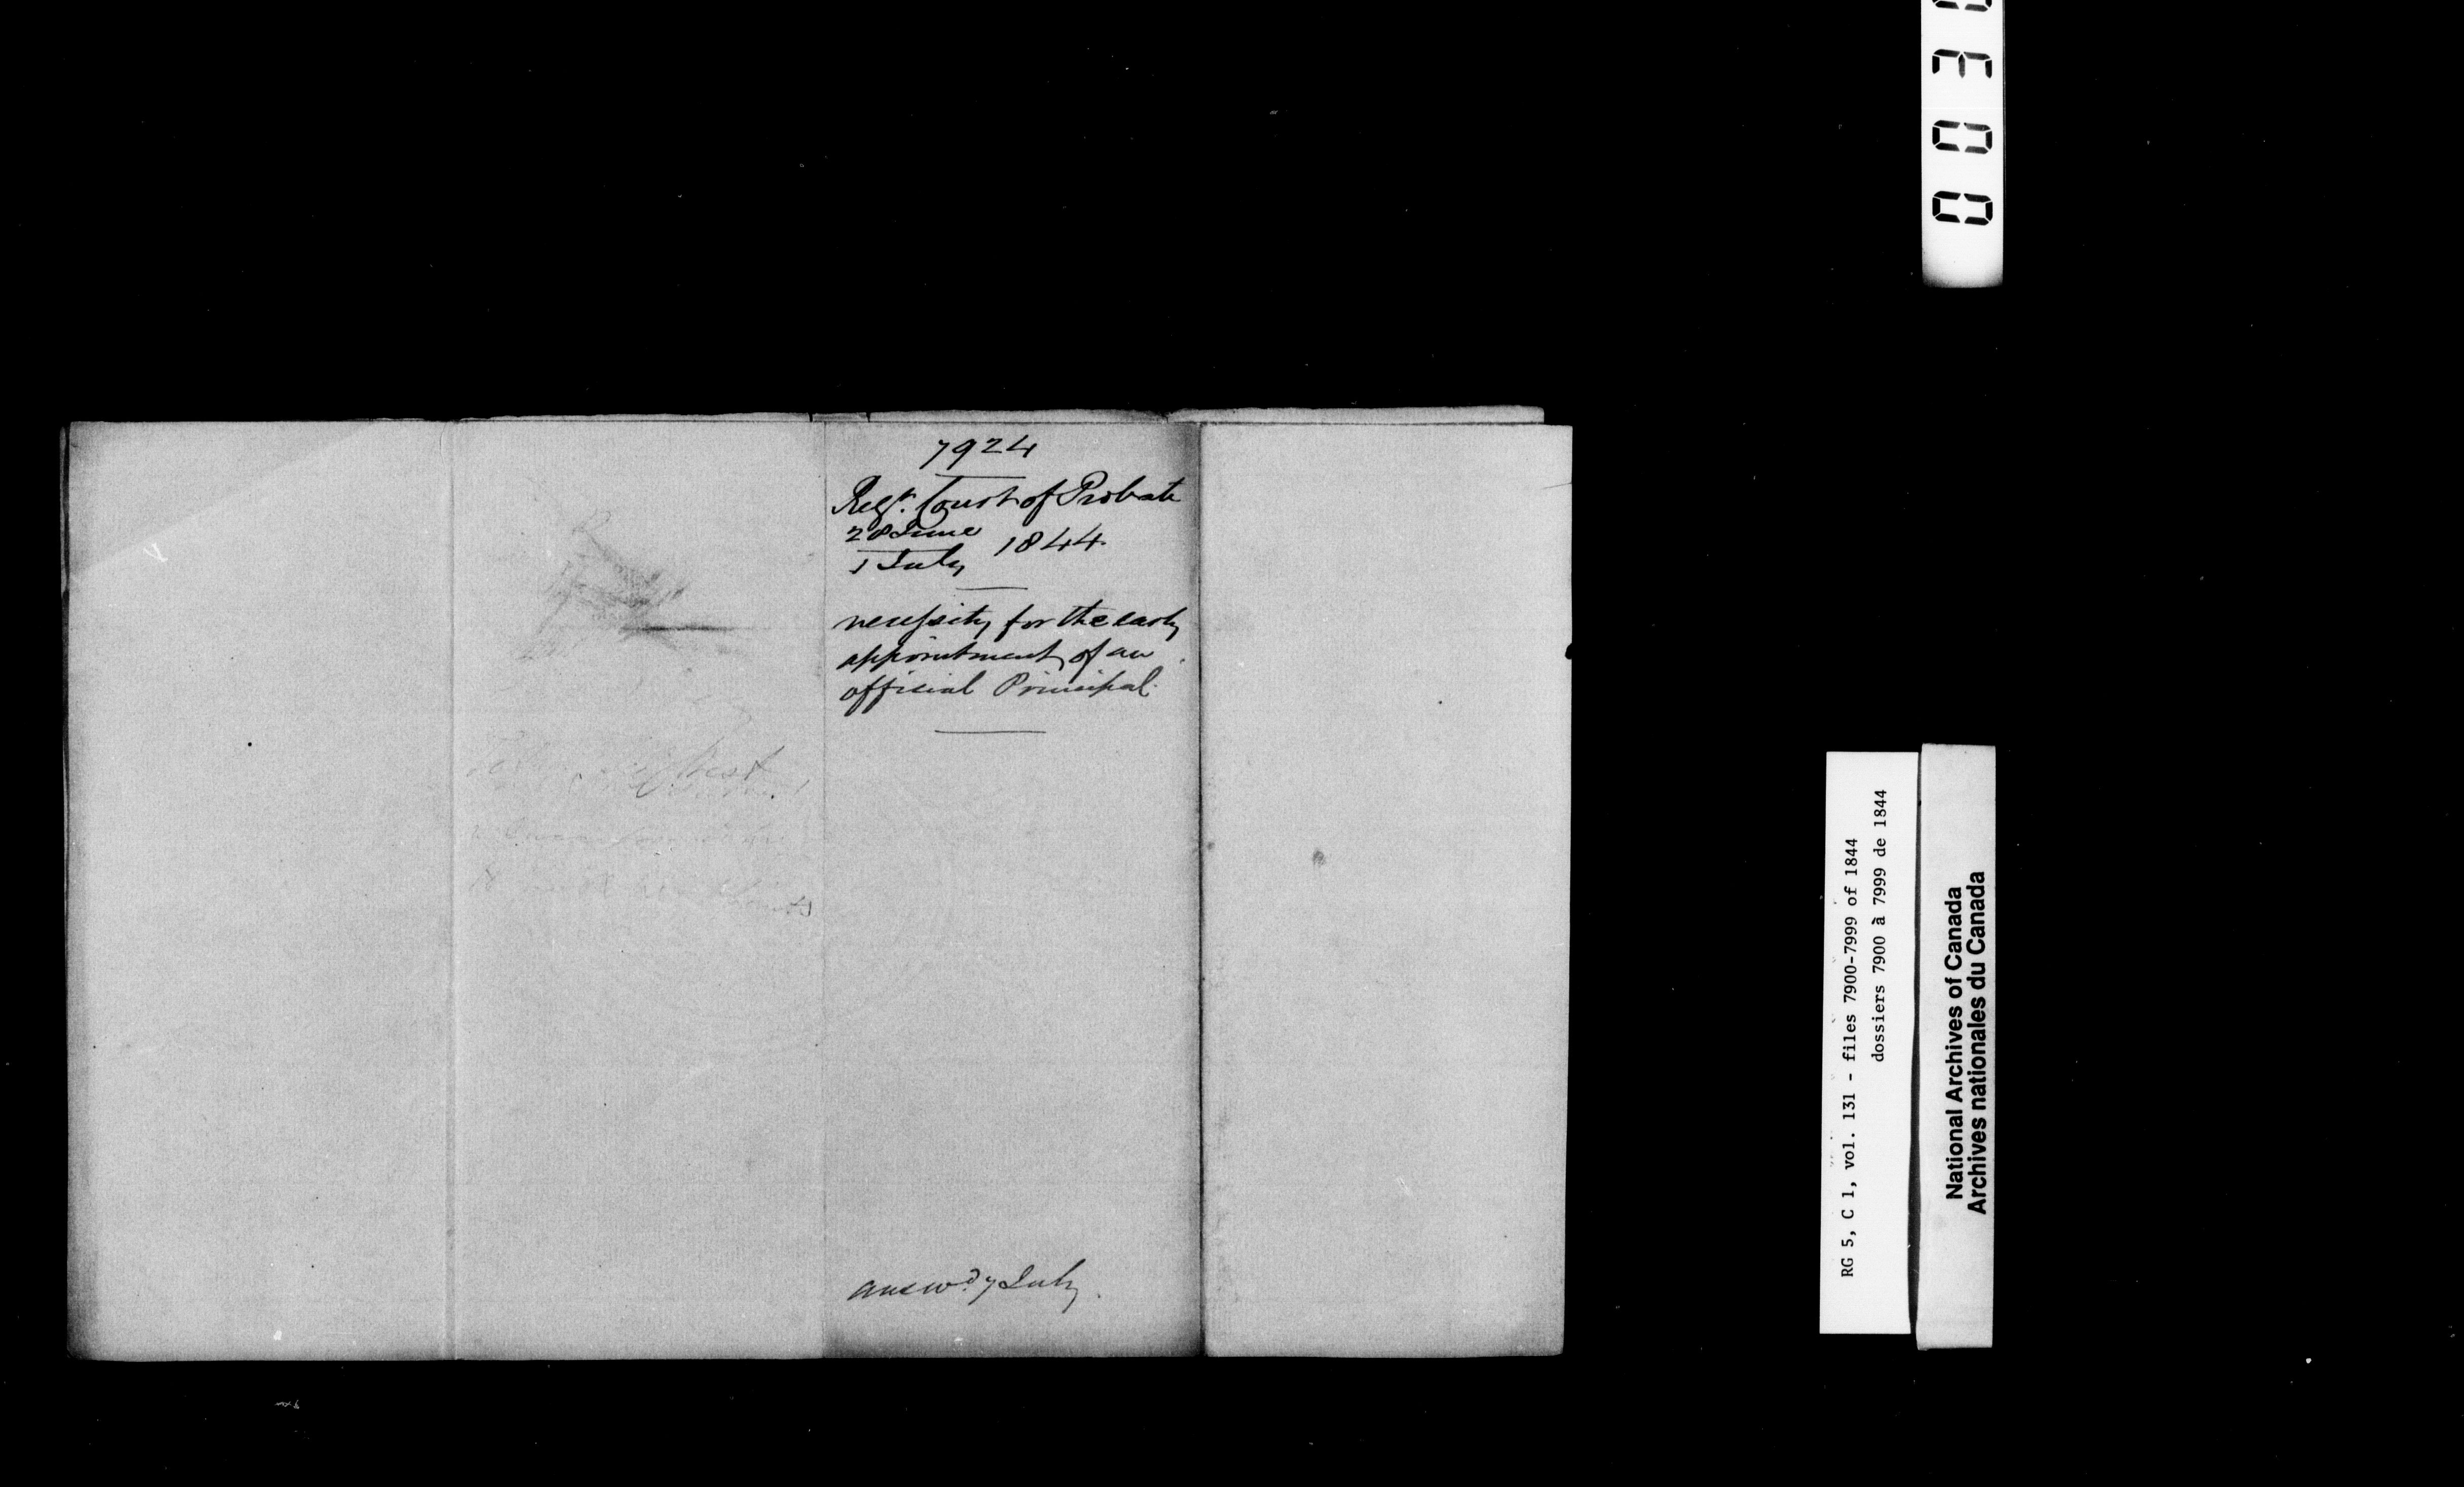 7924
Regr. Court of Probate
28 June
1 July 1844.
necessity for the early
appointment of an
official Principal.
answd. 7 July.
RG 5, C 1, vol. 131 - files 7900-7999 of 1844
dossiers 7900 à 7999 de 1844
National Archives of Canada
Archives nationales du Canada